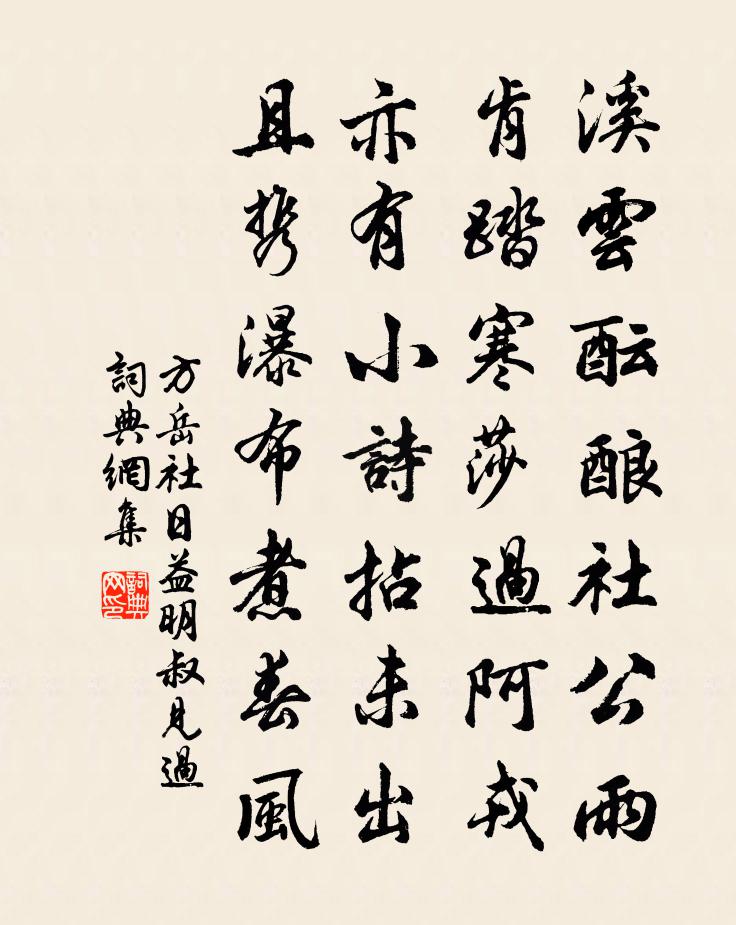 溪雲酝酿社公雨
肯踏寒莎過阿戎
亦有小詩拈未出
且携瀑布煮春風
方岳社日益明叔見過
詞典網集
詞典网印